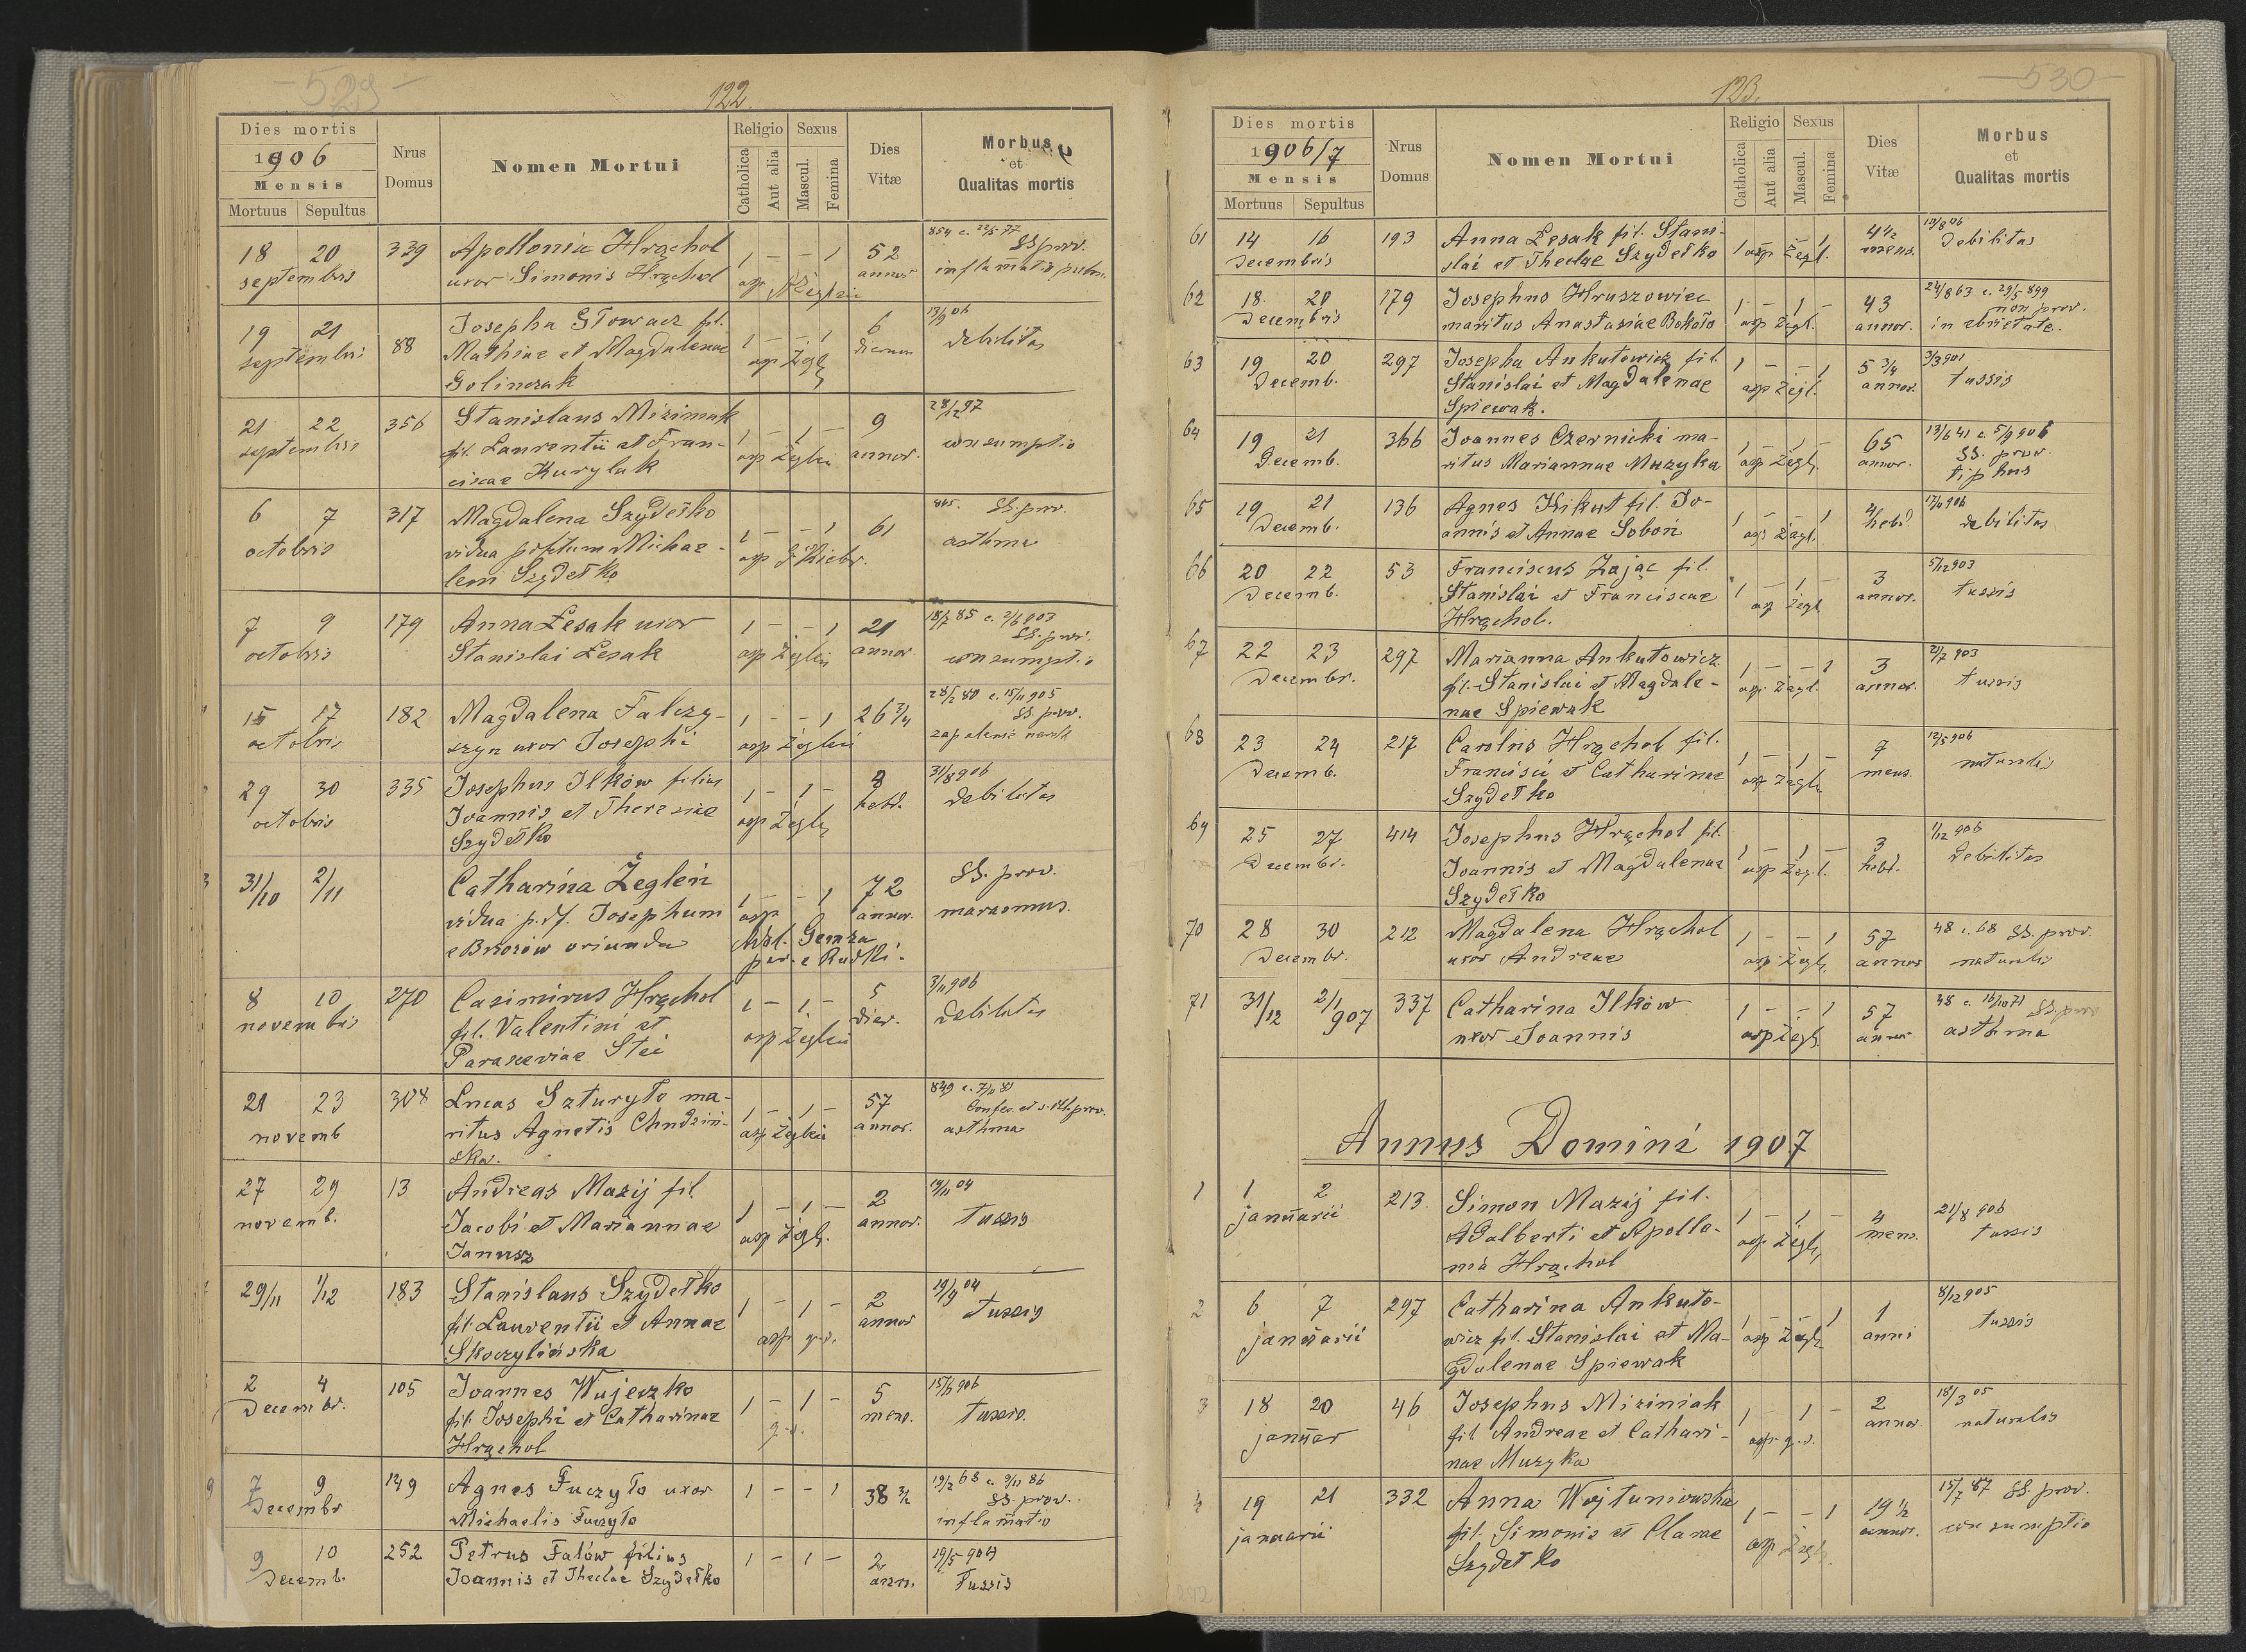 - 529 -
122.
Dies mortis
1906
Mensis
Mortuus Sepultus
Nrus Domus
Nomen Mortui
Religio
Catholica
Aut alia
Sexus
Mascul.
Femina
Dies Vitæ
Morbus
et
Qualitas mortis
18 20 339 Apollonia Hrąchol 1 - - 1 52 854 c. 22/5 77 SS prov.
septembris uxor Simonis Hrąchol asp annor inflam̄atio pulm.
19 21 88 Josepha Głowacz fil. 1 - - 1 6 13/9 06
septembris Mathiae et Magdalenae asp Żegl dierum debilitas
Golinczak
21 22 356 Stanislaus Miziniak 1 - 1 - 9 28/12 97
septembris fil. Laurentii et Fran- asp Żegleń annor. consumptio
ciscae Kurylak
6 7 317 Magdalena Szydełko 1 - - 1 61 845. SS. prov.
octobris vidua post tum Michae- asp asthma
lem Szydełko
7 9 179 Anna Lesak uxor 1 - - 1 21 18/7 85 c. 2/6 903 SS. prov.
octobris Stanislai Lesak asp Żegleń annor consumptio
15 17 182 Magdalena Falczy- 1 - - 1 26 3/4 28/2 80 c. 15/11 905 SS. prov.
octobris szyn uxor Josephi asp Żegleń zapalenie nerek
29 30 335 Josephus Ilków filius 1 - 1 - 8 31/8 906
octobris Joannis et Theresiae asp Żegl hebd. debilitas
Szydełko
31/10 2/11 Catharina Żegleń 1 - - 1 72 SS. prov.
vidua p. d. Josephum asp annor. marasmus.
e Brzozów oriunda Abl. Gemza
par. e Rudki.
8 10 270 Casimirus Hrąchol 1 - 1 - 5 3/11 906
novembris fil. Valentini et asp Żegleń dier. debilitas
Parasceviae Stei
21 23 308 Lucas Szturyło ma- 1 - 1 - 57 849 c. 7/11 81
novemb ritus Agnetis Chudziń- asp Żegleń annor. Confes. et s. Ol. prov.
ska. asthma
27 29 13 Andreas Mazij fil 1 - 1 - 2 19/11 04
novemb. Jacobi et Mariannae asp Żegl. annor. tussis
Janusz
29/11 1/12 183 Stanislaus Szydełko 1 - 1 - 2 19/9 04
fil. Laurentii et Annae asp q.s. annor tussis
Skoczylińska
2 4 105 Joannes Wujeczko 1 - 1 - 5 15/6 906
Decembr. fil. Josephi et Catharinae q.s. mens. tussis.
Hrąchol
7 9 149 Agnes Fuczyło uxor 1 - - 1 38 3/4 19/2 68 c. 9/11 86
Decembr Michaelis Fuczyło SS. prov.
inflam̄atio
9 10 252 Petrus Falów filius 1 - 1 - 2 19/5 904
Decemb. Joannis et Theclae Szydełko ann. Tussis
- 530 -
123.
Dies mortis
1906/7
Mensis
Mortuus Sepultus
Nrus Domus
Nomen Mortui
Religio
Catholica
Aut alia
Sexus
Mascul.
Femina
Dies Vitæ
Morbus
et
Qualitas mortis
61 14 16 193 Anna Lesak fil. Stani- 1 - - 1 4 1/2 10/8 06
Decembris slai et Theclae Szydełko asp Żegl. mens. debilitas
62 18 20 179 Josephus Hruszowiec 1 - 1 - 43 24/8 63 c. 29/5 899 non prov.
Decembris maritus Anastasiae Bokoło asp Żegl. annor. in ebrietate.
63 19 20 297 Josepha Ankutowicz fil. 1 - - 1 5 3/4 3/3 901
Decemb. Stanislai et Magdalenae asp Żegl. annor. tussis
Spiewak.
64 19 21 366 Joannes Czernicki ma- 1 - 1 - 65 13/6 41 c. 5/9 906
Decemb. ritus Mariannae Muzyka asp Żegl. annor. SS. prov.
tiphus
65 19 21 136 Agnes Kikut fil. Jo- 1 - - 1 4 17/11 906
Decemb. annis et Annae Soboń asp Żegl. hebd. debilitas
66 20 22 53 Franciscus Zając fil. 1 - 1 - 3 5/12 903
Decemb. Stanislai et Franciscae asp Żegl annor. tussis
Hrąchol.
67 22 23 297 Marianna Ankutowicz 1 - - 1 3 21/7 903
Decembr. fil. Stanislai et Magdale- asp. Żegl. annor. tussis
nae Spiewak
68 23 24 217 Carolus Hrąchol fil. 1 - 1 - 7 12/5 906
Decemb. Francisci et Catharinae asp Żegl mens. naturalis
Szydełko
69 25 27 414 Josephus Hrąchol fil. 1 - 1 - 3 1/12 906
Decembr. Joannis et Magdalenae asp Żegl. hebd. debilitas
Szydełko
70 28 30 212 Magdalena Hrąchol 1 - - 1 57 48 c. 68 SS. prov.
Decembr. uxor Andreae asp Żegl. annor naturalis
71 31/12 2/1 907 337 Catharina Ilków 1 - - 1 57 48 c. 16/10 71 SS. prov
uxor Joannis asp Żegl. annor asthma
Annus Domini 1907
1 1 2 213 Simon Mazij fil. 1 - 1 - 4 21/8 906
januarii Adalberti et Apollo- asp Żegl. mens. tussis
nia Hrąchol
2 6 7 297 Catharina Ankuto- 1 - - 1 1 8/12 905
januarii wicz fil. Stanislai et Ma- asp Żegl anni tussis
gdalenae Spiewak
3 18 20 46 Josephus Miziniak 1 - 1 - 2 18/3 05
januar fil. Andreae et Cathari- asp q.s. annor. naturalis
nae Muzyka
4 19 21 332 Anna Wojtuniowska 1 - - 1 19 1/2 15/7 87 SS prov.
januarii fil. Simonis et Clarae asp Żegl. annor. consumptio
Szydełko